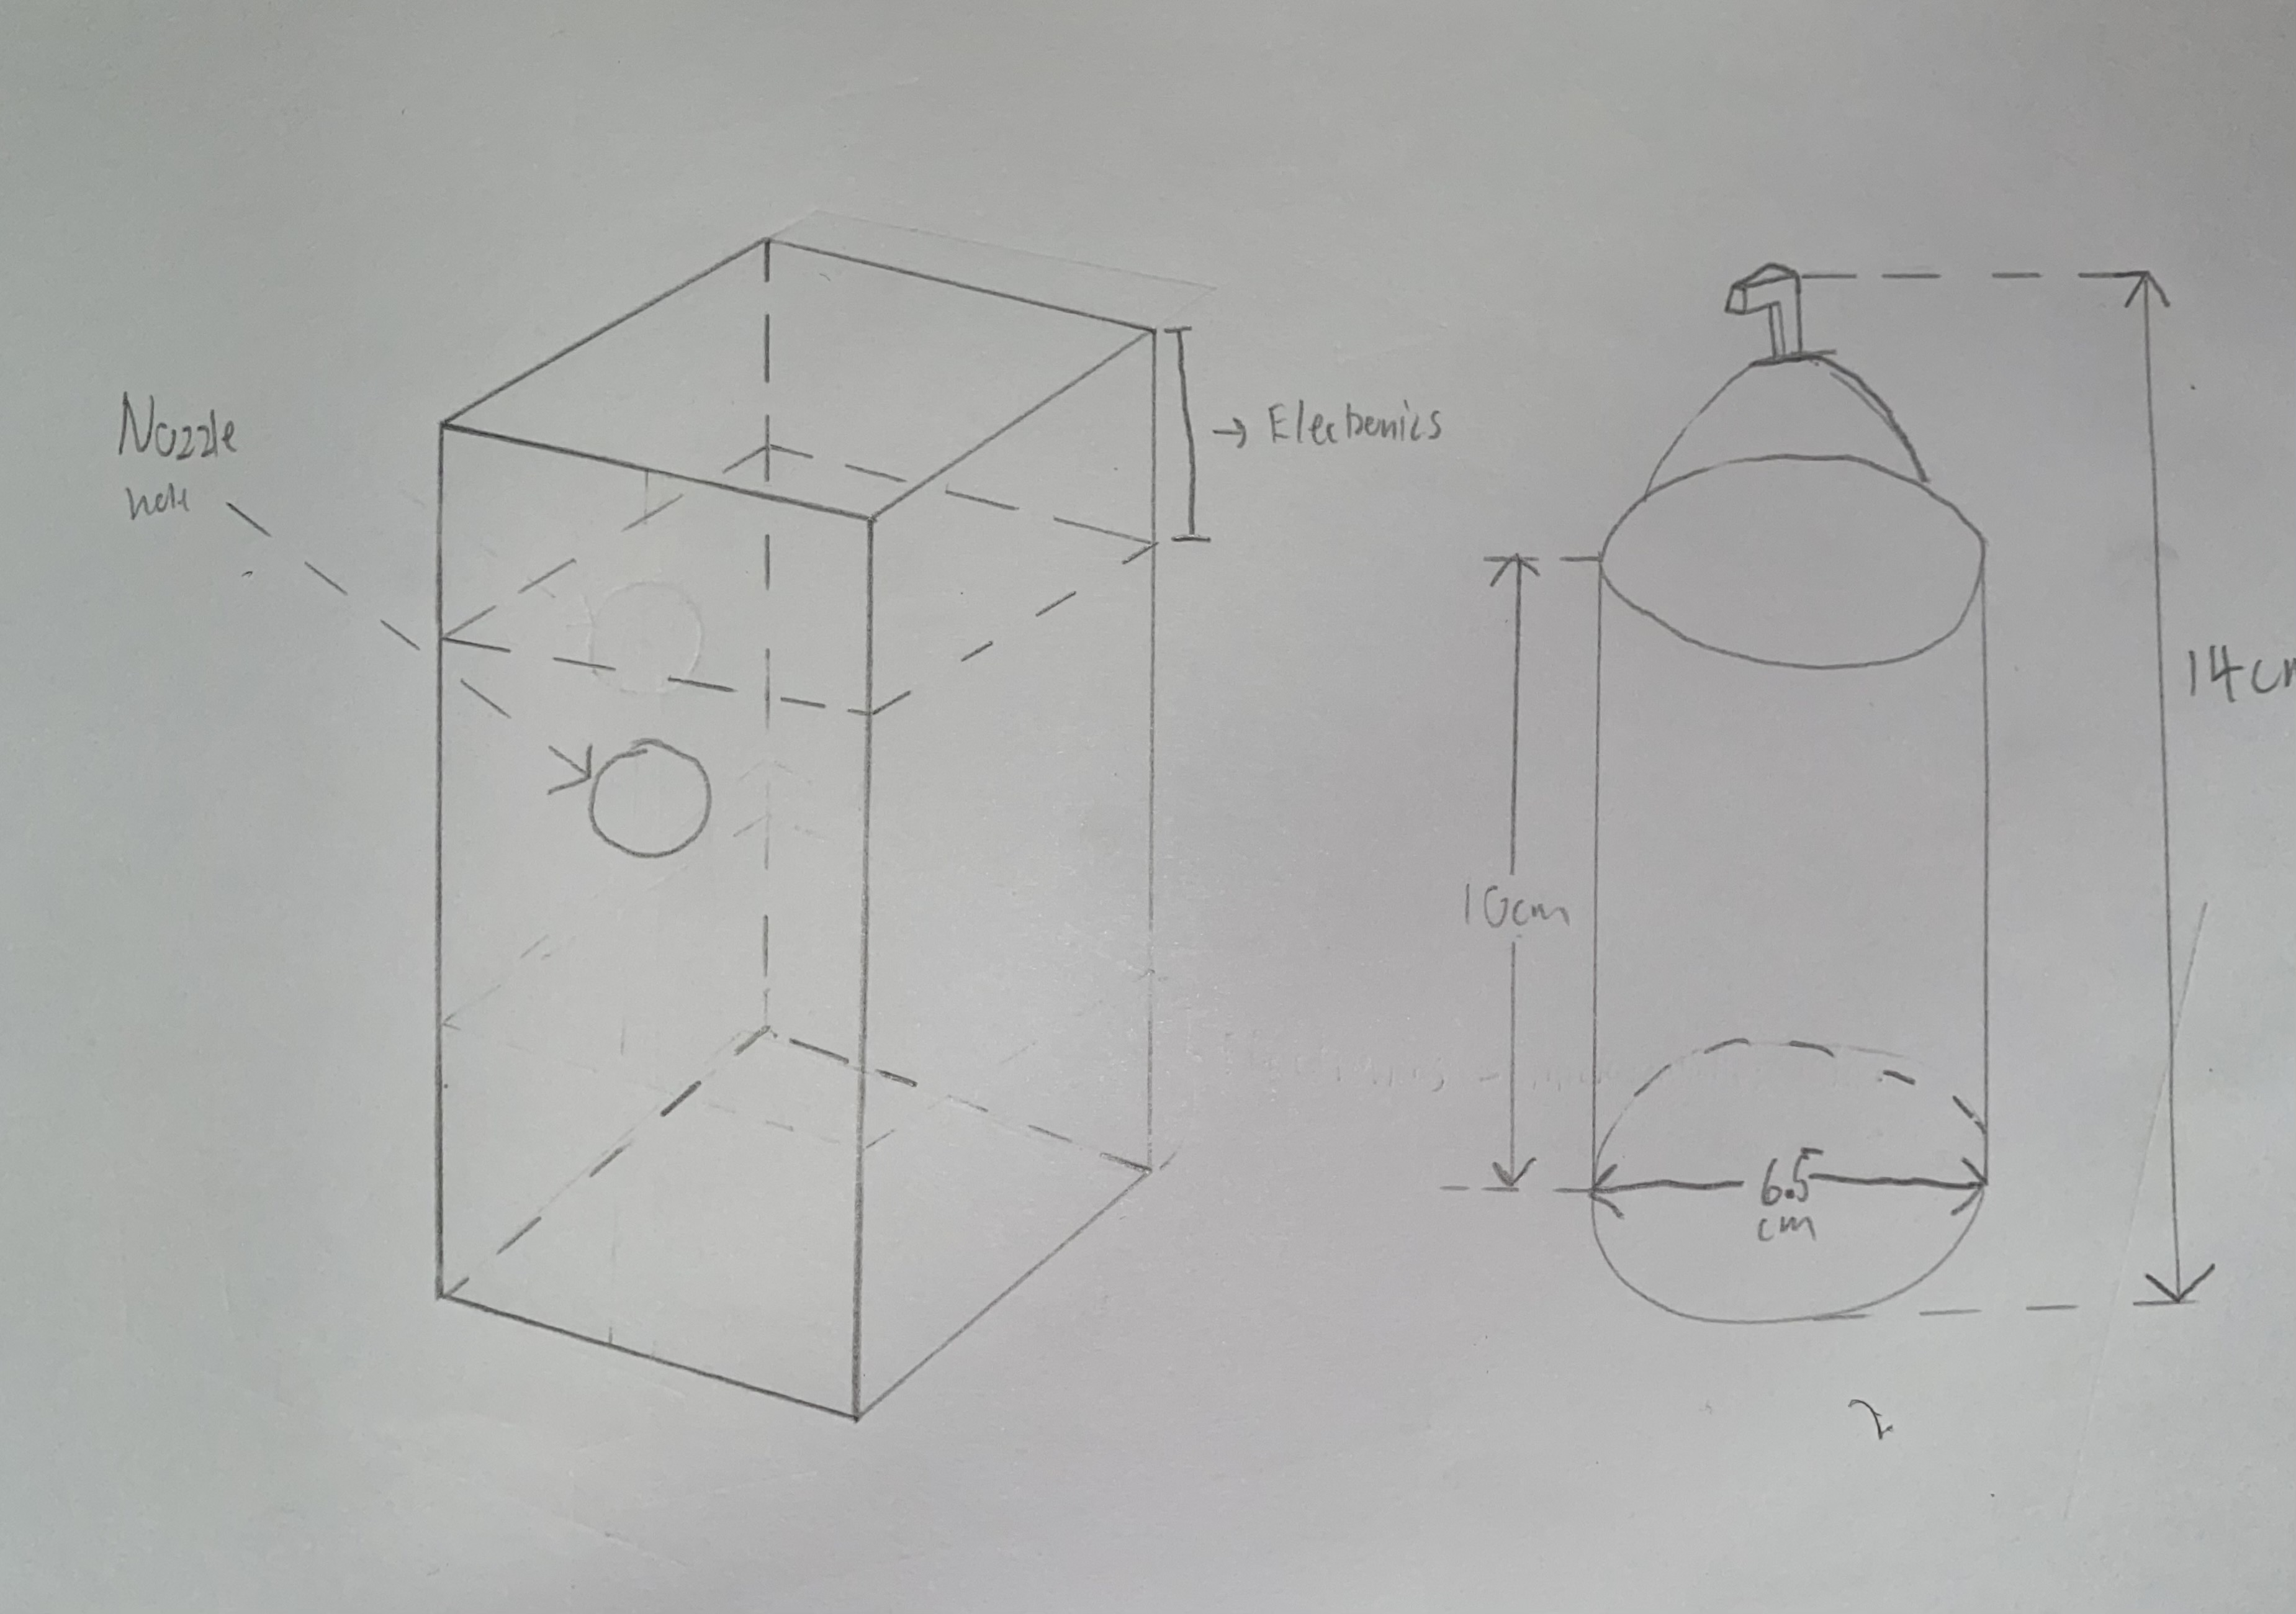 Nozzle
hole
→ Electronics
14cm
10cm
6.5
cm